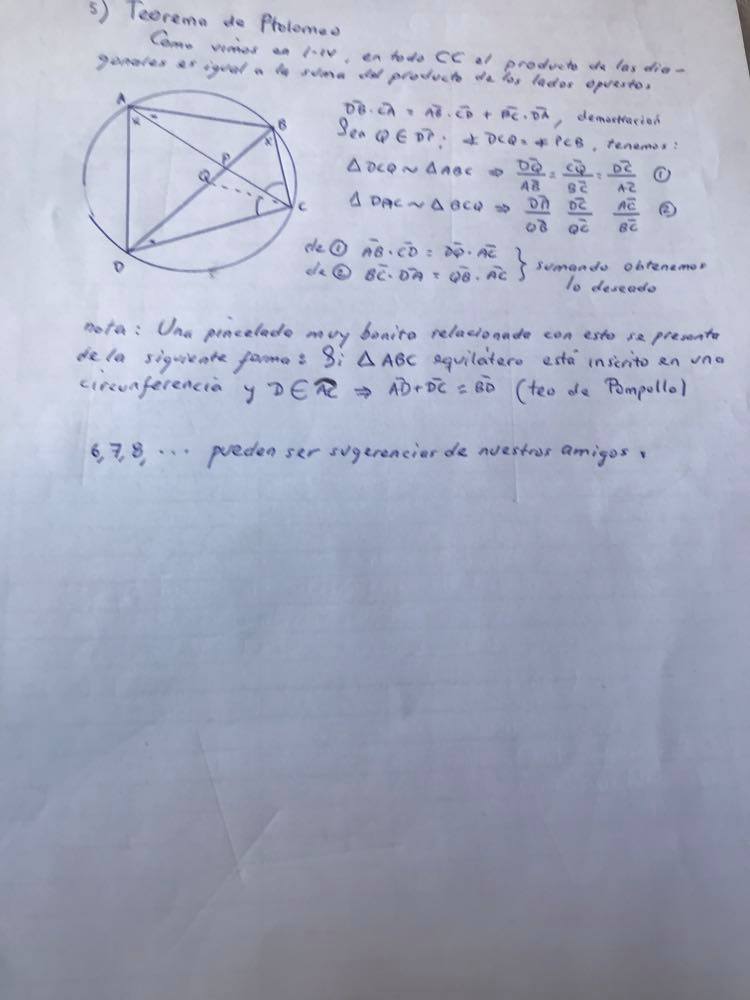 5) Teorema de Ptolomeo
Como vimos en I-IV, en todo CC el producto de las dia-
gonales es igual a la suma del producto de los lados opuestos.
A
B
P
Q
C
D
x
x
D̄B · C̄A = ĀB · C̄D + B̄C · D̄A, demostración
Sea Q ∈ D̄P; ∢ DCQ = ∢ PCB, tenemos:
△ DCQ ~ △ ABC ⇒ D̄Q/ĀB = C̄Q/B̄C = D̄C/ĀC ①
△ DAC ~ △ BCQ ⇒ D̄A/Q̄B D̄C/Q̄C ĀC/B̄C ②
de ① ĀB · C̄D = D̄Q · ĀC
de ② B̄C · D̄A = Q̄B · ĀC } sumando obtenemos
lo deseado
nota: Una pincelada muy bonita relacionada con esto se presenta
de la siguiente forma: Si △ ABC equilátero está inscrito en una
circunferencia y D ∈ A͡C ⇒ ĀD + D̄C = B̄D (teo de Pompollo)
6, 7, 8, ... pueden ser sugerencias de nuestros amigos.